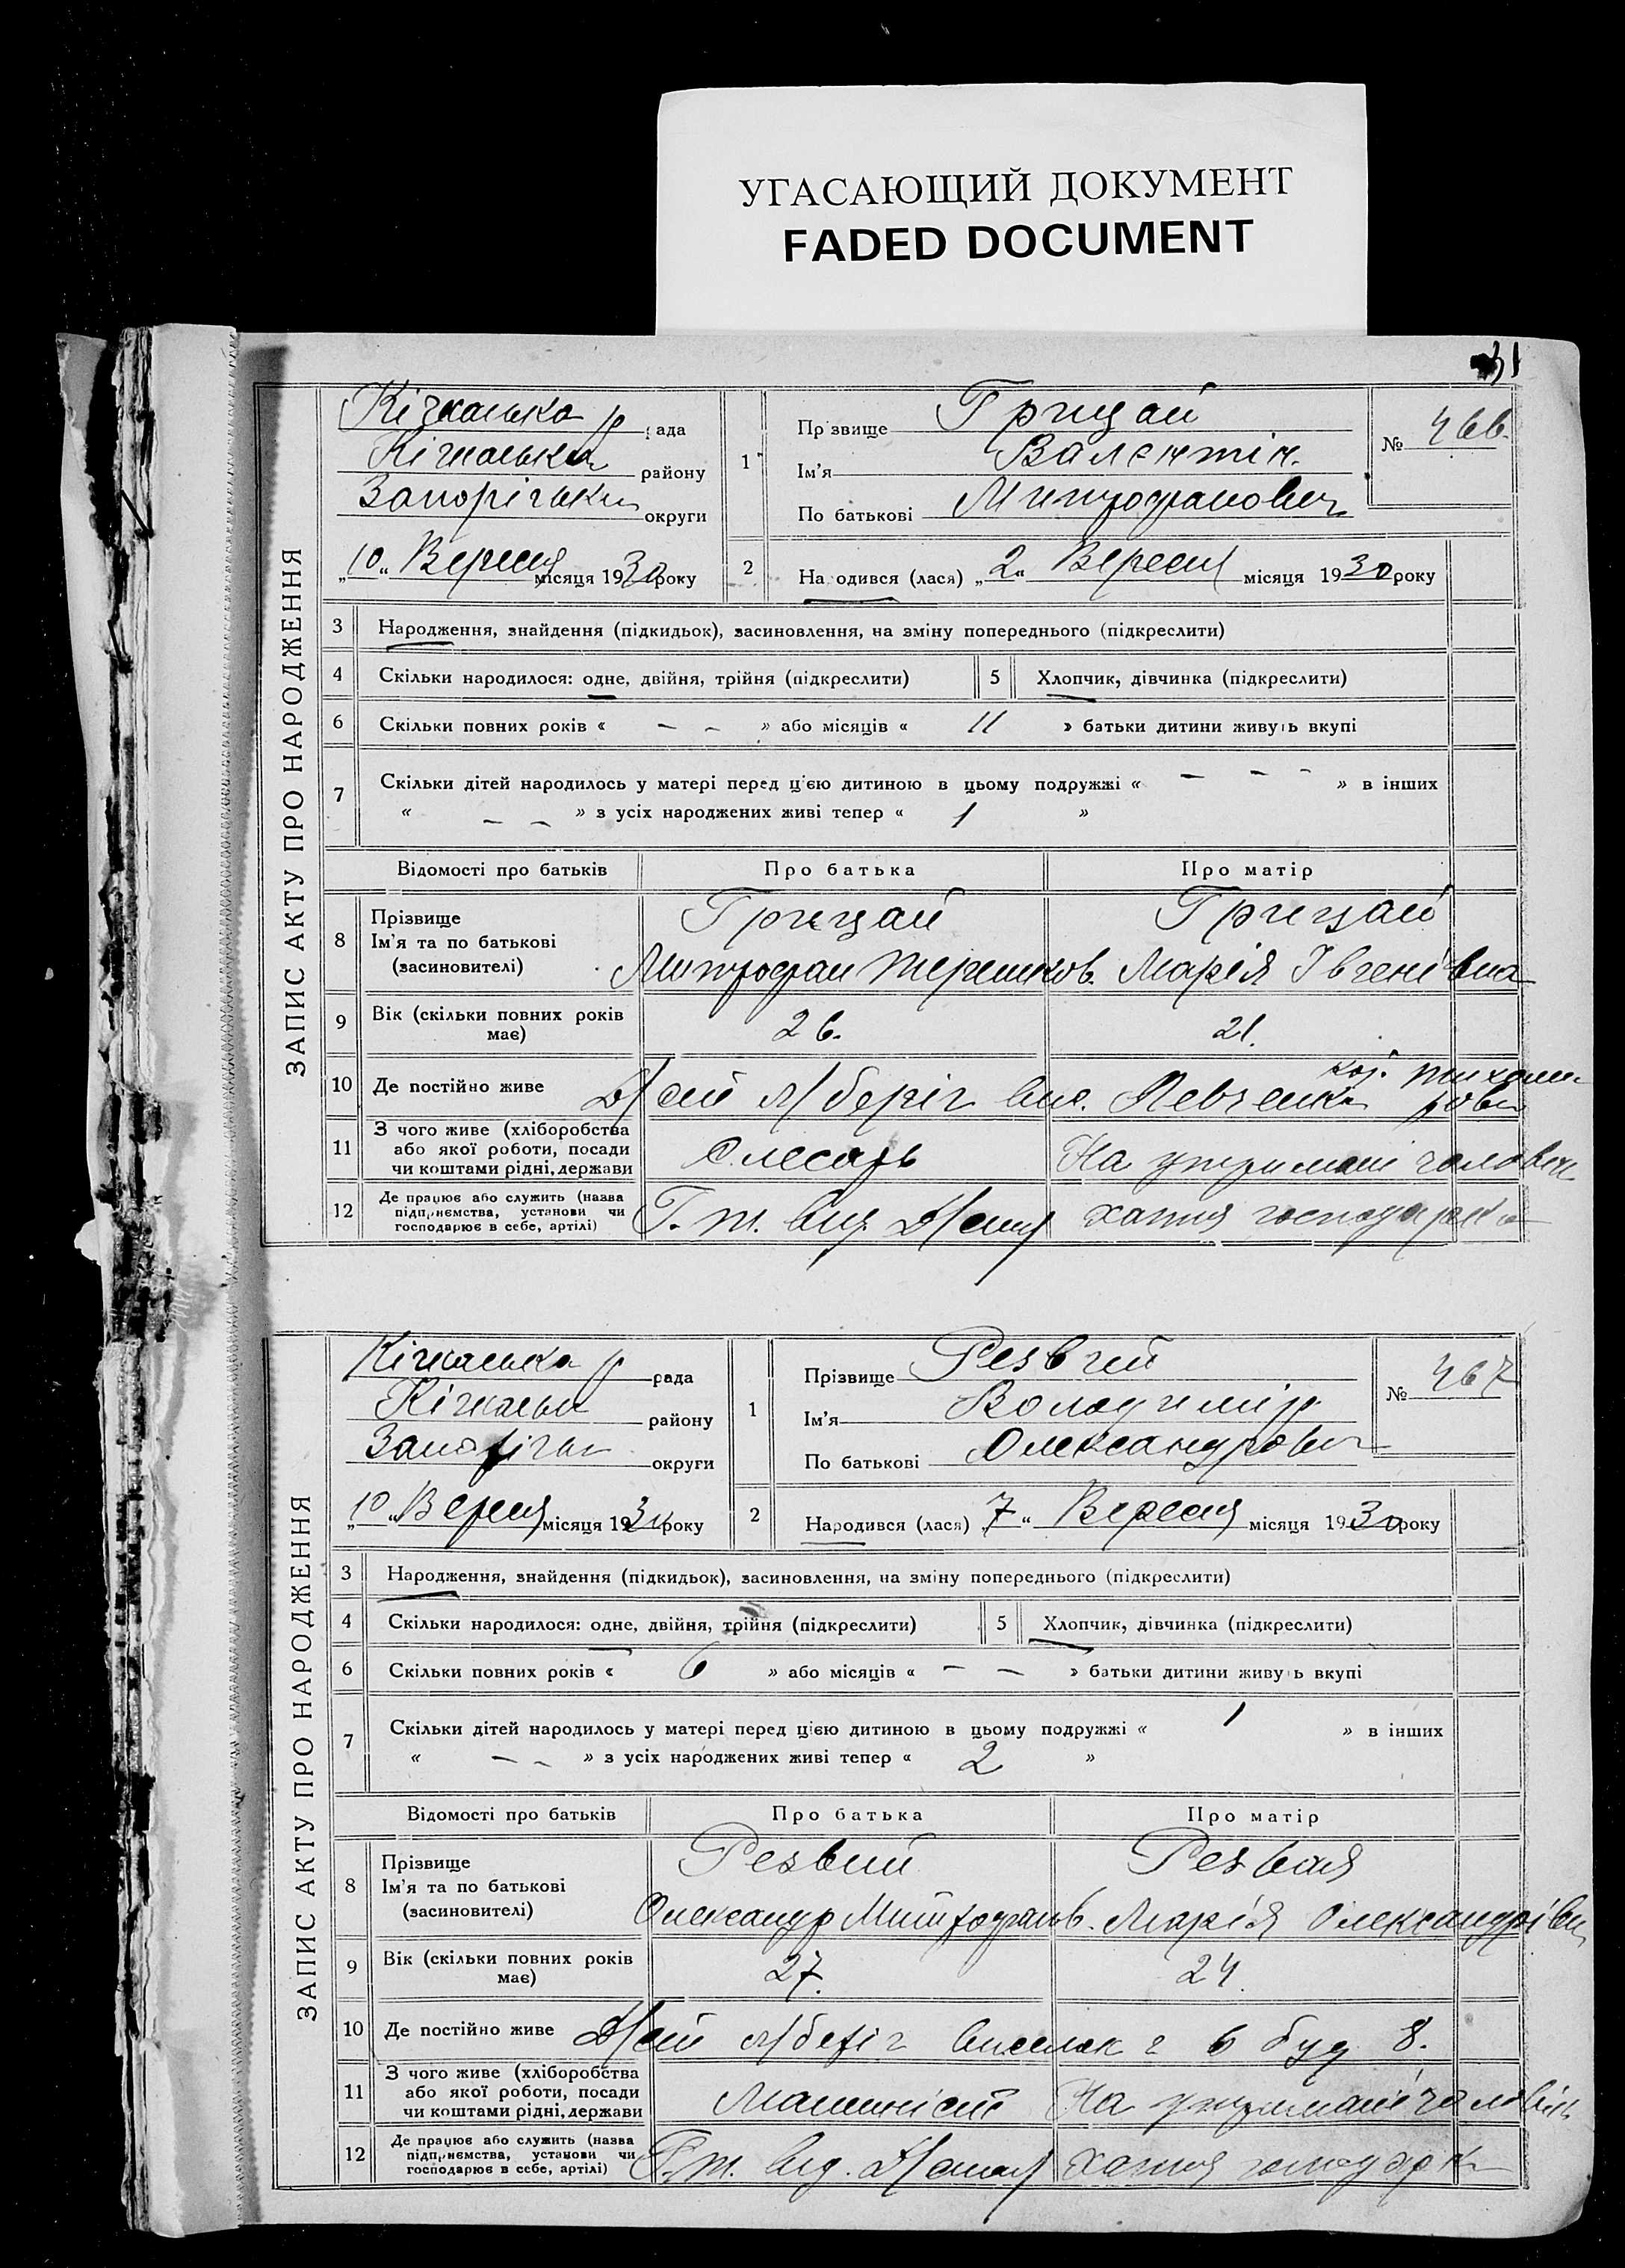 УГАСАЮЩИЙ ДОКУМЕНТ
FADED DOCUMENT
31
ЗАПИС АКТУ ПРО НАРОДЖЕННЯ
Кічкаська р рада
Кічкаськ району
Запоріськ округи
„10“ Вересня місяця 1930 року
1 Прізвище Грицай
Ім'я Валентін.
По батькові Митрофанович
№ 466.
2 Народився (лася) „2“ Вересня місяця 1930 року
3 Народження, знайдення (підкидьок), засиновлення, на зміну попереднього (підкреслити)
4 Скільки народилося: одне, двійня, трійня (підкреслити) 5 Хлопчик, дівчинка (підкреслити)
6 Скільки повних років « — — » або місяців « 11 » батьки дитини живуть вкупі
7 Скільки дітей народилось у матері перед цією дитиною в цьому подружжі « — — — » в інших
« — — » з усіх народжених живі тепер « 1 »
Відомості про батьків Про батька Про матір
8 Прізвище Грицай Грицай
Ім'я та по батькові
(засновителі) Митрофан Терешков. Марія Івгенівна
9 Вік (скільки повних років має) 26. 21.
10 Де постійно живе беріг вис.
11 З чого живе (хліборобства
або якої роботи, посади
чи коштами рідні, держави Слесарь На утримані чоловік
12 Де працює або служить (назва
підприємства, установи чи
господарює в себе, артілі) хатня господарка
ЗАПИС АКТУ ПРО НАРОДЖЕННЯ
Кічкаська р рада
Кічкаськ району
Запоріськ округи
„10“ Вересня місяця 1930 року
1 Прізвище Резвий
Ім'я Володимір
По батькові Олександрович
№ 467
2 Народився (лася) 7“ Вересня місяця 1930 року
3 Народження, знайдення (підкидьок), засиновлення, на зміну попереднього (підкреслити)
4 Скільки народилося: одне, двійня, трійня (підкреслити) 5 Хлопчик, дівчинка (підкреслити)
6 Скільки повних років « 6 » або місяців « — — » батьки дитини живуть вкупі
7 Скільки дітей народилось у матері перед цією дитиною в цьому подружжі « 1 » в інших
« — — » з усіх народжених живі тепер « 2 »
Відомості про батьків Про батька Про матір
8 Прізвище Резвий Резвая
Ім'я та по батькові
(засиновителі) Олександр Митрофанов. Марія Олександрівн
9 Вік (скільки повних років має) 27. 24
10 Де постійно живе беріг виселок 6 буд 8.
11 З чого живе (хліборобства
або якої роботи, посади
чи коштами рідні, держави Машиніст На утримані чоловік
12 Де працює або служить (назва
підприємства, установи чи
господарює в себе, артілі) хатня господарка